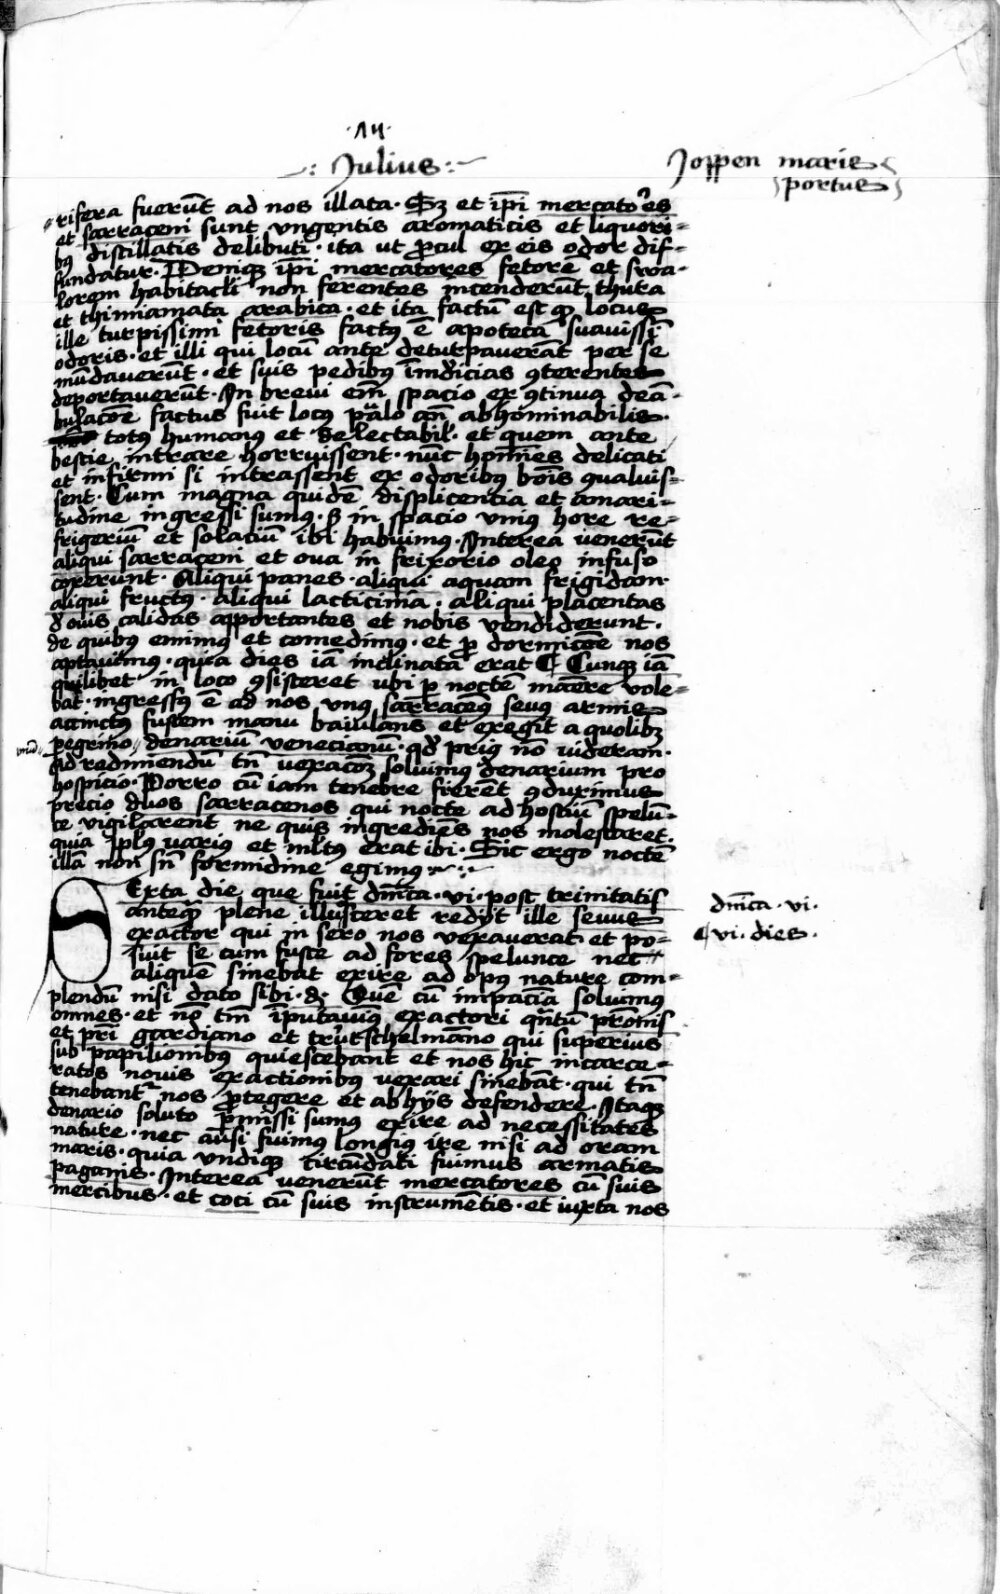 ·VII·
Julius
Joppen maris
portus
rifera fuerūt ad nos illata · Sꝫ et ip̄i mercatores
et sarraceni sunt vngentis aromaticis et liquori-
bꝰ distillatis delibuti · ita ut ꝓcul ex eis odor dif-
fundatur · Deniqꝫ ip̄i mercatores fetorē et sqa-
lorem habitacl̄i non ferentes incenderūt thura
et thimiamata arabica · et ita factū est ꝙ locus
ille turpissimi fetoris factꝰ ē apoteca suauissi
odoris · et illi qui locū ante deturpauerāt per se
mūdauerūt · et suis pedibꝰ īmūdicias ꝯterentes
deportauerūt · In breui em̄ spacio ex ꝯtinua deā-
bulacōe factus fuit locꝰ p̄alo an̄ abhominabilis
totꝰ humanꝰ et delectabil̄ · et quem ante
bestie intrare horruissent · nūc hoīnes delicati
et infirmi si intrassent ex odoribꝰ bōis qualuis-
sent · Cum magna quidē displicentia et amari-
tudine ingressi sumꝰ · ꝫ in spacio vniꝰ hore re-
frigeriū et solatiū ibi habuimꝰ · Interea venerūt
aliqui sarraceni et oua in frixorio oleo infuso
coxerunt · Aliqui panes · aliqui aquam frigidam ·
aliqui fructꝰ · aliqui lacticinia · aliqui placentas
d' ouis calidas apportantes et nobis vendiderunt ·
de quibꝰ emimꝰ et comedimꝰ · et ꝓ dormicōe nos
aptauimꝰ · quia dies iā inclinata erat ¶ Cunqꝫ iā
quilibet in loco ꝯsisteret ubi ꝑ noctē manere vole-
bat · ingressꝰ ē ad nos vnꝰ sarracenꝰ seuꝰ armis
accinctꝰ fustem manu baiulans et exegit a quolibꝫ
peregrino denariū venecianū · qd̄ priꝰ nō uideram ·
vnū
Ad redimiendū tn̄ vexacōꝫ soluimꝰ denarium pro
hospicio · Porro cū iam tenebre fierēt ꝯduximus
precio duos sarracenos qui nocte ad hostiū spelū-
ce vigilarent ne quis ingrediēs nos molestaret ·
quia pplꝰ variꝰ et mltꝰ erat ibi · Sic ergo noctē
illā non sn̄ formidine egimꝰ
Sexta die que fuit dn̄ica · vi · post trinitatis
anteqꝫ plene illusceret redijt ille seuus
dn̄ica · vi ·
exactor qui in sero nos vexauerat et po-
¶ vi · dies ·
suit se cum fuste ad fores spelunce nec
aliquē sinebat exire ad opꝰ nature com-
plendū nisi dato sibi · d' · Quē cū impaciā soluimꝰ
omnes · et nō tm̄ īputauimꝰ exactori qn̄tū p̄rōnis
et pr̄i gardiano et trutschelmāno qui superius
sub papilionibꝰ quiescebant et nos hic incarce-
ratos nouis exactionibꝰ vexari sinebāt · qui tn̄
tenebantʳ nos ꝓtegere et ab hijs defendere · Itaqꝫ
denario soluto ꝑmissi sumꝰ exire ad necessitates
nature · nec ausi fuimꝰ longiꝰ ire nisi ad oram
maris · quia vndiqꝫ circūdati fuimus armatis
paganis · Interea venerūt mercatores cū suis
mercibus · et coci cū suis instrumētis · et iuxta nos